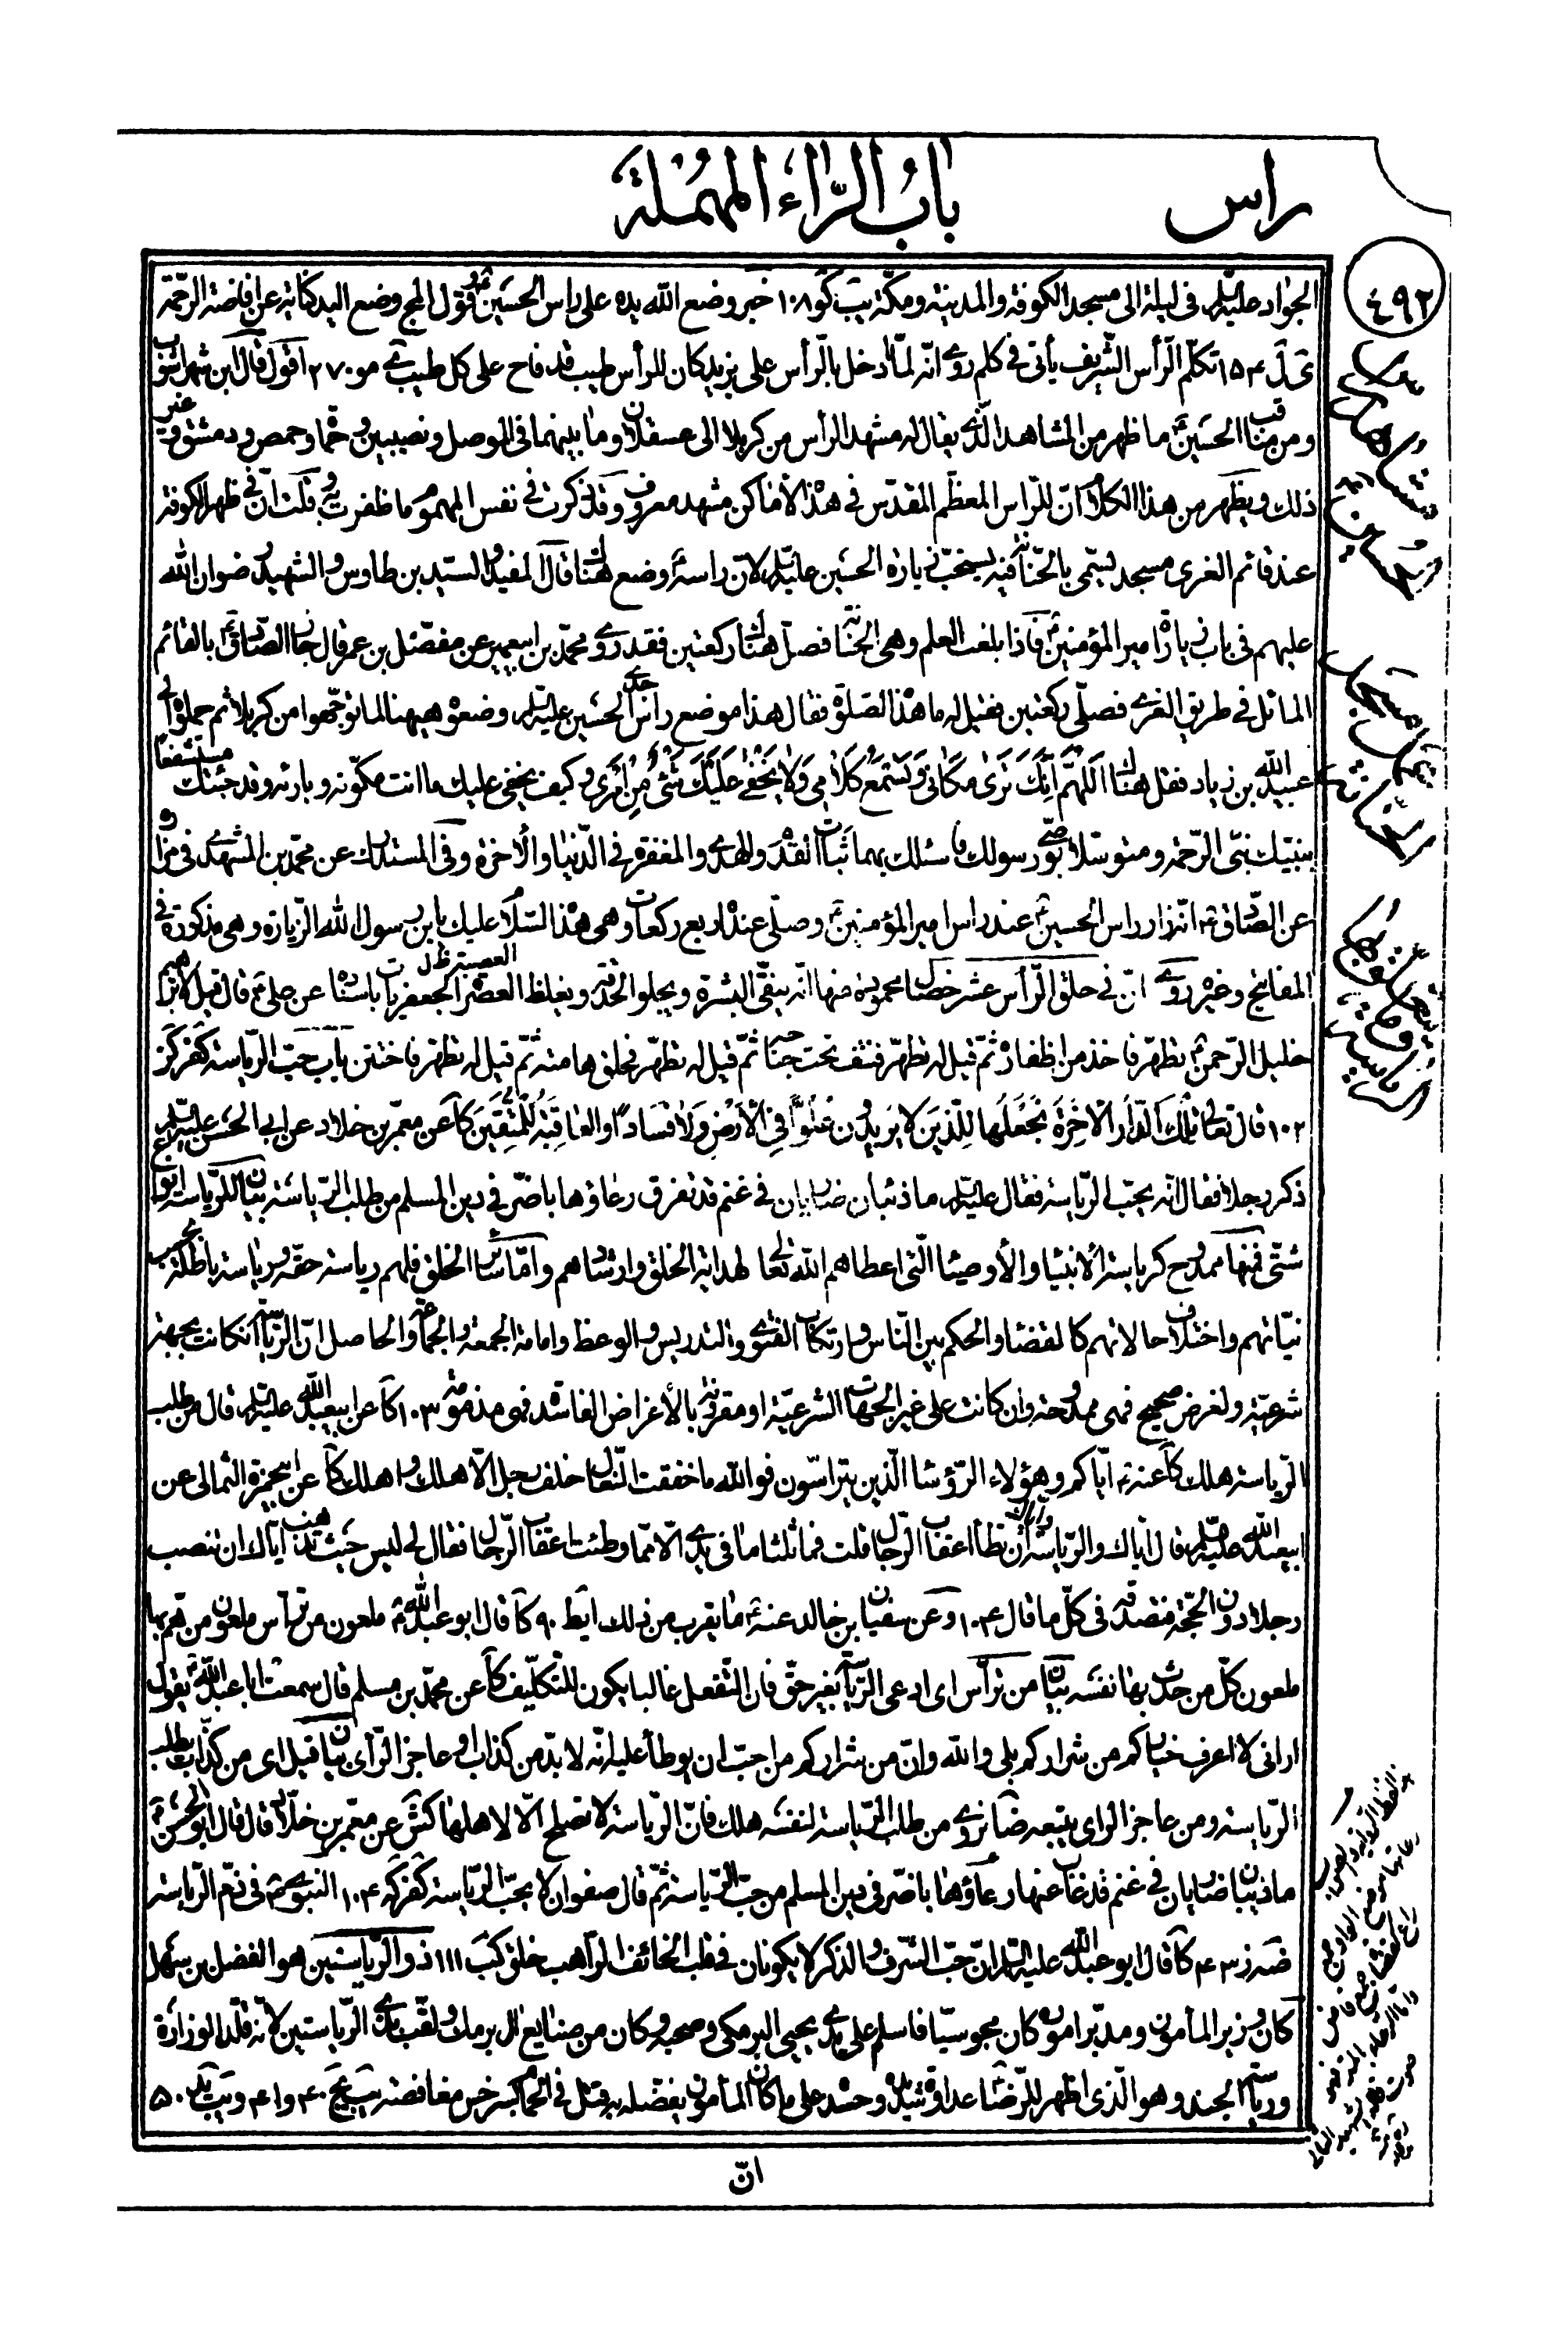 راس
باب الراء المهملة
٤٩٢
الجواد عليه السلام في ليلة الى مسجد الكوفة والمدينة ومكة يب كو ١٠٨ خبر وضع الله يده على راس الحسين قول المج وضع اليد كناية عن افاضة الرحمة
ى ل ١٥٤ تكلم الرأس الشريف يأتى في كلم روى انه لما ادخل بالرأس على يزيد كان للرأس طيب قد فاح على كل طيب مو ٢٧٠ اقول قال ابن شهراشوب
ومن مناقب الحسين ما ظهر من المشاهد الذى يقال له مشهد الرأس من كربلا الى عسقلان وما بينهما في الموصل ونصيبين وحماه وحمص ودمشق وغير
ذلك ويظهر من هذا الكلام ان للراس المعظم المقدس في هذه الأماكن مشهد معروف وقد ذكرت في نفس المهموم ما ظفرت به قلت ان في ظهر الكوفة
عند قائم الغرى مسجد يسمى بالحنانة فيه يستحب زيارة الحسين عليه السلام لان راسه وضع هناك قال المفيد والسيد بن طاوس والشهيد رضوان الله
عليهم في باب زيارة امير المؤمنين فاذا بلغت العلم وهى الحنانة فصل هناك ركعتين فقد روى محمد بن ابيعمير عن مفضل بن عمر قال جاز الصادق بالقائم
المائل في طريق الغرى فصلى ركعتين فقيل له ما هذه الصلوة فقال هذا موضع راس جدى الحسين عليه السلام وضعوه ههنا لما توجهوا من كربلا ثم حملوه الى
عبيد الله بن زياد فقل هناك اللهم انك ترى مكانى وتسمع كلامى ولا يخفى عليك شئ من امرى وكيف يخفى عليك ما انت مكونه وبارئه وقد جئتك مستشفعا
بنبيك نبى الرحمة ومتوسلا بوصى رسولك فاسئلك بهما ثبات القدم والهدى والمغفرة في الدنيا والاخرة وفي المستدرك عن محمد بن المشهدى في مزاره
عن الصادق انه زار راس الحسين عند راس امير المؤمنين وصلى عنده اربع ركعات وهى هذه السلام عليك يابن رسول الله الزيارة وهى مذكورة في
المفاتيح وغيره روى ان في حلق الرأس عشر خصال محمودة منها انه ينقى البشرة ويجلو الحدقة ويغلظ العصر الجعفريات باسناده عن على قال قيل لابراهيم
العصبة ظ ل
خليل الرحمن تطهر فاخذ من اظفاره ثم قيل له تطهر فنتف تحت جناحيه ثم قيل له تطهر فحلق هامته ثم قيل له تطهر فاختتن باب حب الرياسة كفر كز
١٠٢ قال تعالى تلك الدار الاخرة نجعلها للذين لا يريدون علوا في الأرض ولا فسادا والعاقبة للمتقين كا عن معمر بن خلاد عن ابى الحسن عليه السلام
ذكر رجلا فقال انه يحب الرياسة فقال عليه السلام ما ذئبان ضاريان في غنم قد تفرق رعاؤها باضر في دين المسلم من طلب الرياسة بيان للرياسة انواع
شتى فمنها ممدوح كرياسة الأنبياء والأوصياء التى اعطاهم الله تعالى لهداية الخلق وارشادهم واما سائر الخلق فلهم رياسة حقة ورياسة باطلة بحسب
نياتهم واختلاف حالاتهم كالقضاء والحكم بين الناس وارتكاب الفتوى والتدريس والوعظ وامامة الجمعة والجماعة والحاصل ان الرياسة ان كانت بجهة
شرعية ولغرض صحيح فهى ممدوحة وان كانت على غير الجهات الشرعية او مقرونة بالأغراض الفاسدة فهى مذمومة ١٠٣ كا عن ابيعبد الله عليه السلام قال من طلب
الرياسة هلك كا عنه اياكم وهؤلاء الرؤساء الذين يتراسون فوالله ما خفقت النعال خلف رجل الا هلك واهلك كا عن ابيحمزة الثمالى عن
ابيعبد الله عليه السلام قال اياك والرياسة واياك ان تطأ اعقاب الرجال قلت فما ثلثا ما في يدى الا مما وطئت اعقاب الرجال فقال لى ليس حيث تذهب اياك ان تنصب
رجلا دون الحجة فتصدقه في كل ما قال ١٠٤ وعن سفيان بن خالد عنه ما يقرب من ذلك ايط ٩٠ كا قال ابو عبد الله ملعون من تراس ملعون من هم بها
ملعون كل من حدث بها نفسه بيان من ترأس اى ادعى الرياسة بغير حق فان التفعل غالبا يكون للتكليف كا عن محمد بن مسلم قال سمعت ابا عبد الله يقول
ارانى لا اعرف خياركم من شراركم بلى والله وان من شراركم من احب ان يوطأ عليه انه لا بد من كذاب او عاجز الرأى بيان قيل اى من كذاب يطلب
الرياسة ومن عاجز الراى يتبعه ضا نروى من طلب الرياسة لنفسه هلك فان الرياسة لا تصلح الا لاهلها كش عن معمر بن خلاد قال قال ابو الحسن
ما ذئبان ضاريان في غنم قد غاب عنها رعاؤها باضر في دين المسلم من حب الرياسة ثم قال صفوان لا يحب الرياسة كفر كه ١٠٤ النبوى في ذم الرياسة
ضه ز ٤٣ كا قال ابو عبد الله عليه السلام ان حب الشرف والذكر لا يكونان في قلب الخائف الراهب خلق كب ١١١ ذو الرياستين هو الفضل بن سهل
كان وزير المأمون ومدبر اموره كان مجوسيا فاسلم على يدى يحيى البرمكى وصحبه وكان من صنايع ال برمك ولقب بذى الرياستين لانه قلد الوزارة
ورياسة الجند وهو الذى اظهر للرضا عداوة شديدة وحسده على ما كان المأمون يفضله به قتل في الحمام بسرخس مغافصة يب يج ٤٠ و ٤١ ويب يد ٥٠
ان
مشاهد راس الحسين
مسجد الحنانة